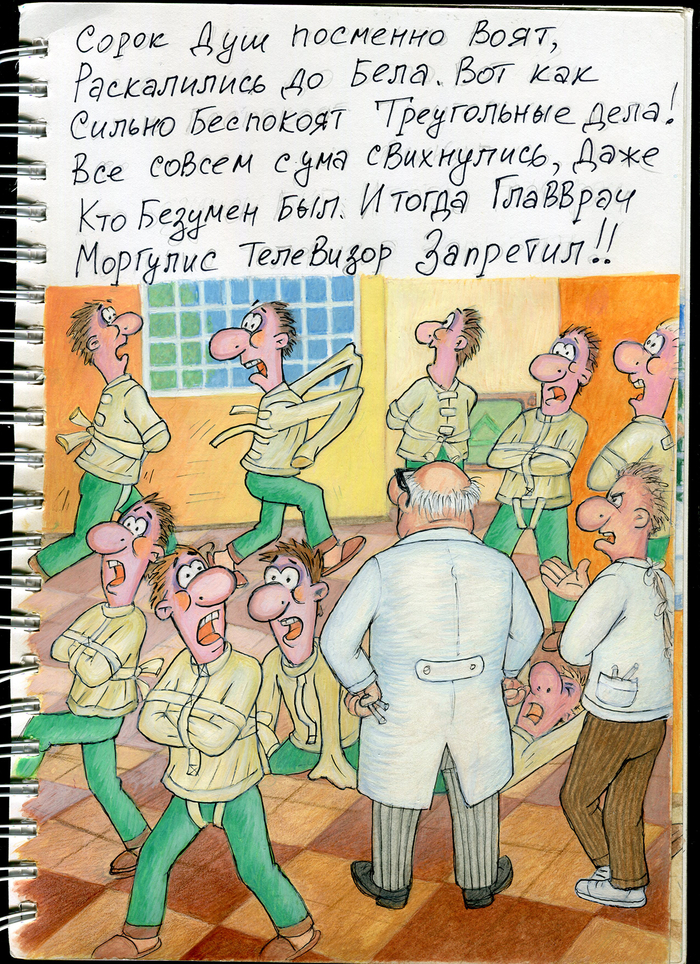 Сорок Душ посменно Воят,
Раскалились до Бела. Вот как
Сильно Беспокоят Треугольные дела!
Все совсем с ума свихнулись, Даже
Кто Безумен Был. И тогда ГлавВрач
Моргулис ТелеВизор Запретил!!